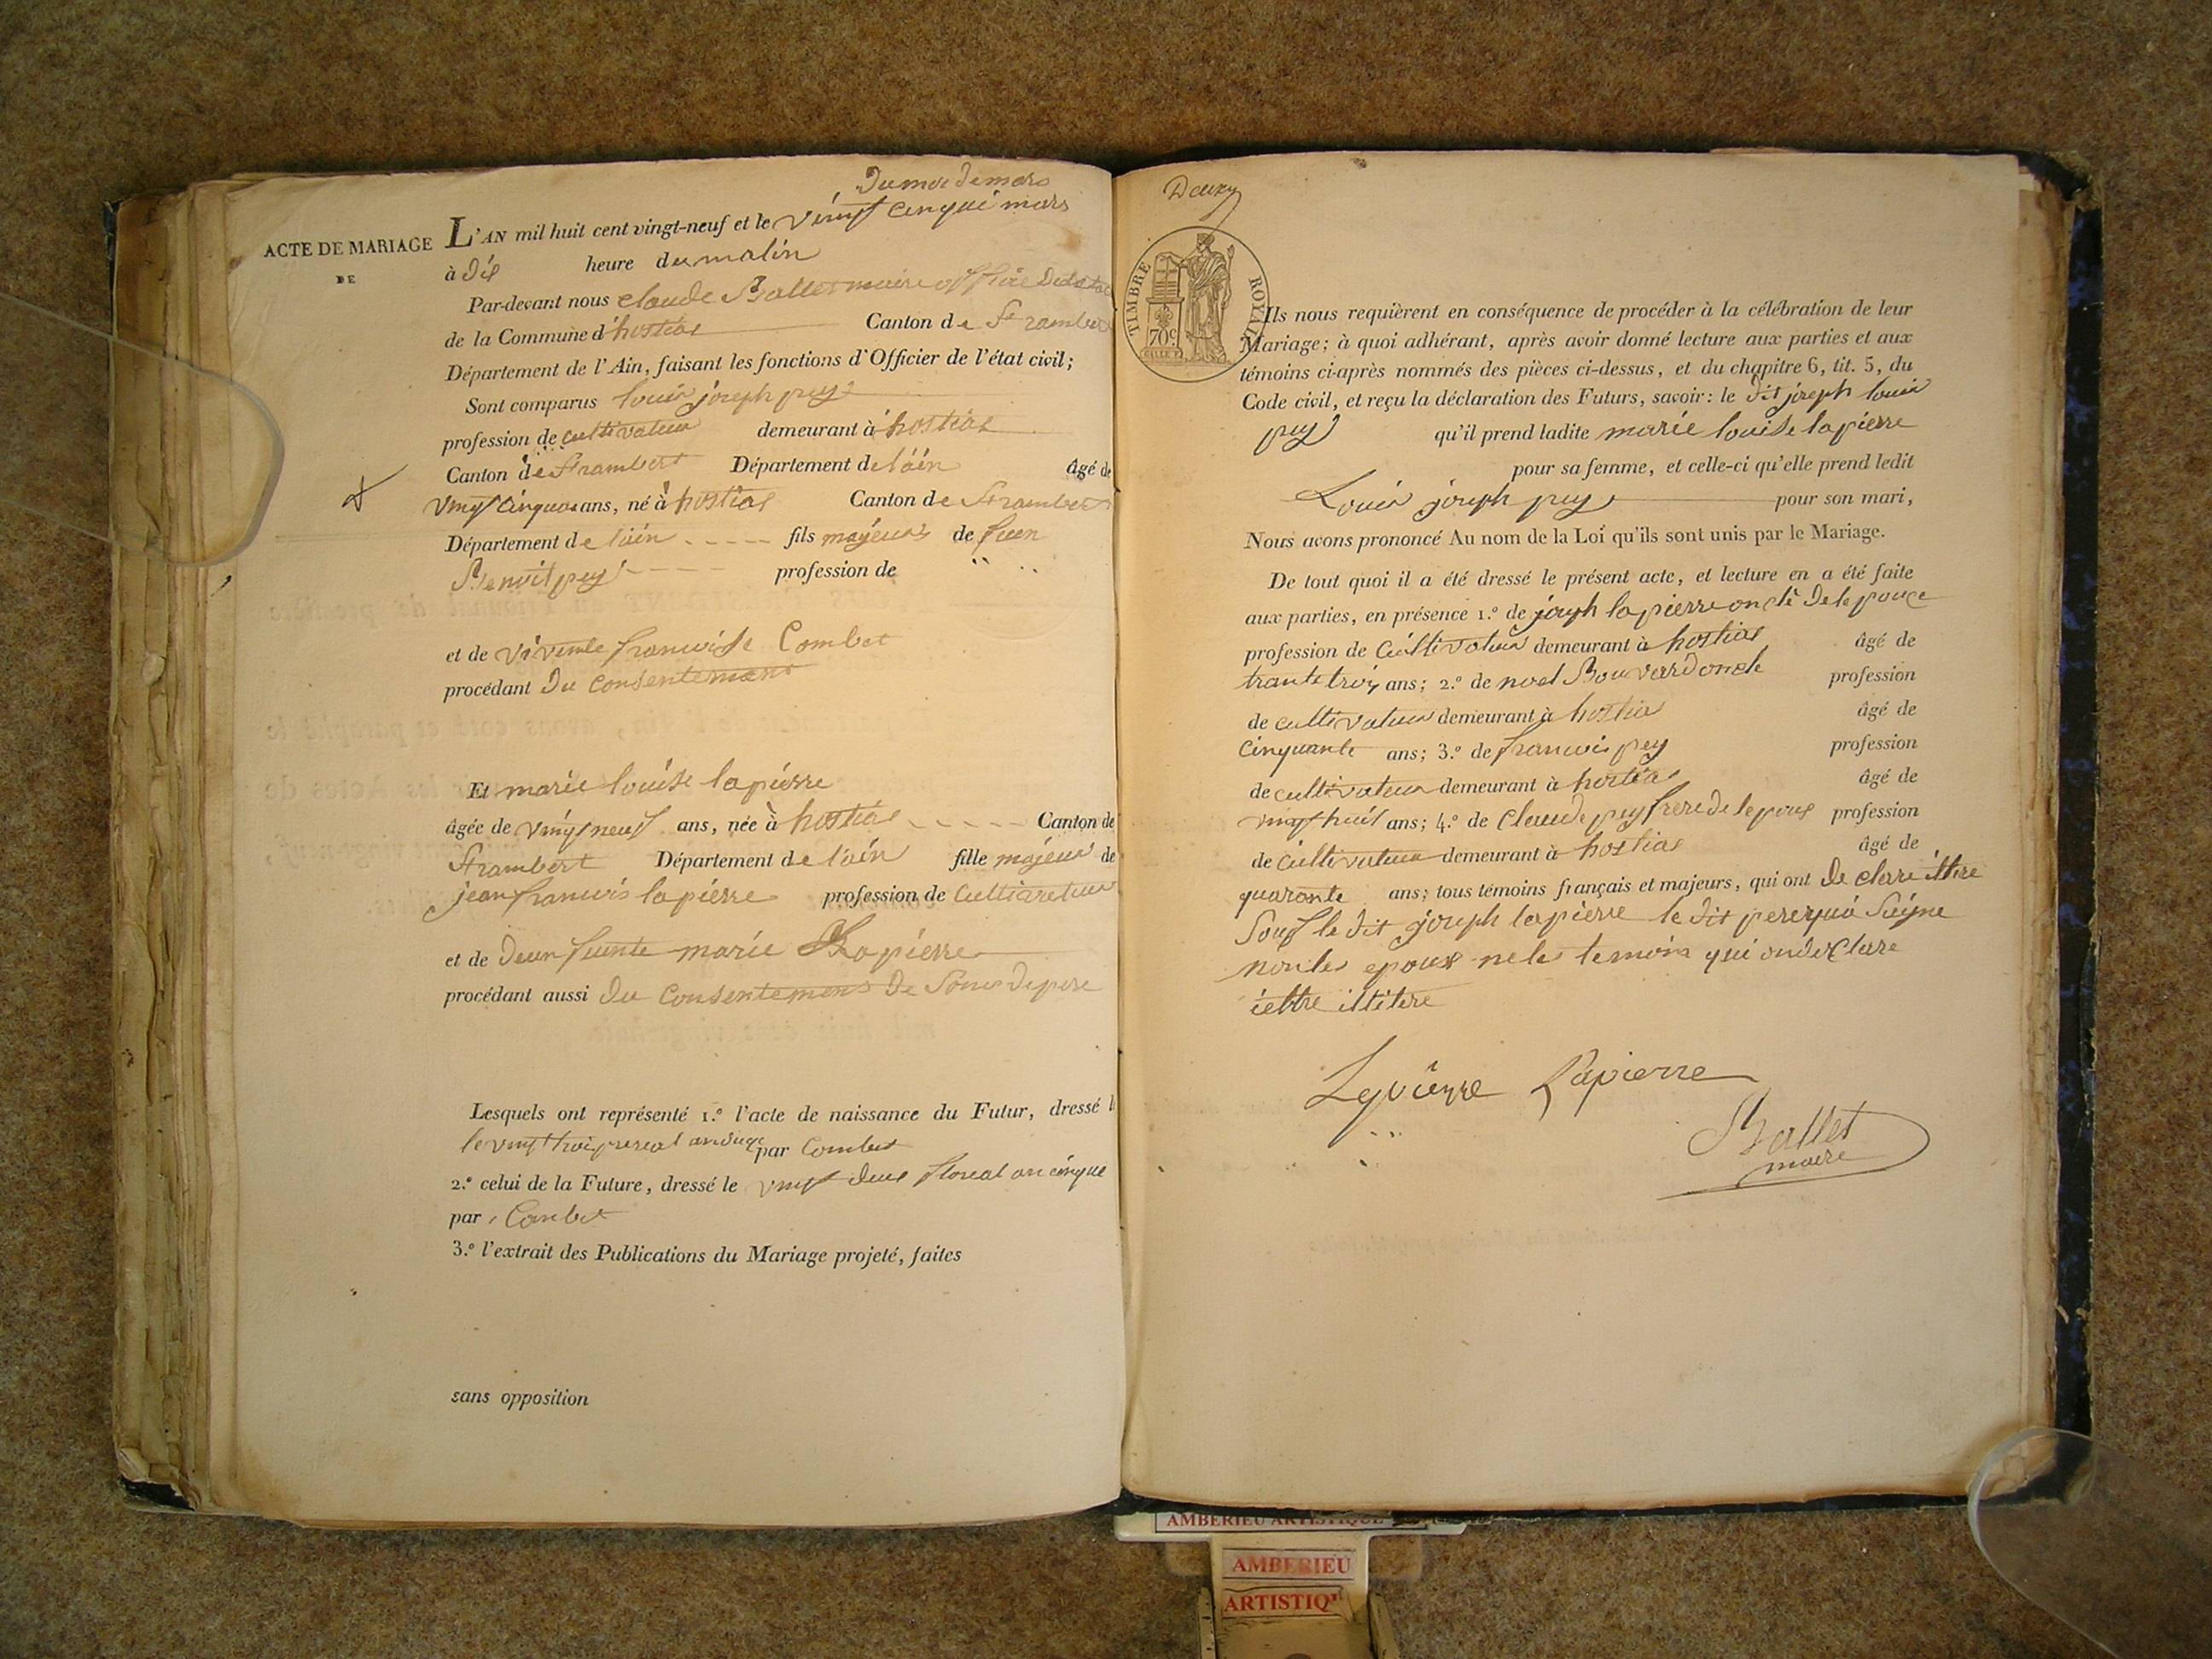 Du moi de mars
ACTE DE MARIAGE
DE
L'AN mil huit cent vingt-neuf et le vingt cinque mars
à dix heure du matin
Par-devant nous claude Ballet maire
de la Commune d'hostias Canton de St rambert
Département de l'Ain, faisant les fonctions d'Officier de l'état civil;
Sont comparus louis joseph pey
profession de cultivateur demeurant à hostias
Canton de St rambert Département de l'ain âgé de
ans, né à hostias Canton de St rambert
Département de l'ain fils majeur de feu
Benoit pey profession de
et de vivente francoise Combet
procédant du consentement
Et marie louise lapierre
âgée de vingt neuf ans, née à hostias Canton de
St rambert Département de l'ain fille majeur de
jean francois lapierre profession de
et de marie Lapierre
procédant aussi du consentement de
Lesquels ont représenté 1.º l'acte de naissance du Futur, dressé
par Combet
2.º celui de la Future, dressé le vingt deux floreal an cinque
par Combet
3.º l'extrait des Publications du Mariage projeté, faites
sans opposition
Deuxy
TIMBRE ROYAL
70 c
Ils nous requièrent en conséquence de procéder à la célébration de leur
Mariage; à quoi adhérant, après avoir donné lecture aux parties et aux
témoins ci-après nommés des pièces ci-dessus, et du chapitre 6, tit. 5, du
Code civil, et reçu la déclaration des Futurs, savoir: le dit joseph louis
pey qu'il prend ladite marie louise lapierre
pour sa femme, et celle-ci qu'elle prend ledit
Louis joseph pey pour son mari,
Nous avons prononcé Au nom de la Loi qu'ils sont unis par le Mariage.
De tout quoi il a été dressé le présent acte, et lecture en a été faite
aux parties, en présence 1.º de joseph lapierre oncle de
profession de cultivateur demeurant à hostias âgé de
trante trois ans; 2.º de noel Bouvard oncle profession
de cultivateur demeurant à hostia âgé de
cinquante ans; 3.º de francois pey profession
de cultivateur demeurant à hostias âgé de
vingt huit ans; 4.º de claude pey frere de profession
de cultivateur demeurant à hostias âgé de
quarante ans; tous témoins français et majeurs, qui ont
le dit joseph lapierre le dit pere
non les epoux ne les temoins qui
Lapierre Lapierre
Ballet
maire
AMBERIEU ARTISTIQUE
AMBERIEU
ARTISTIQ